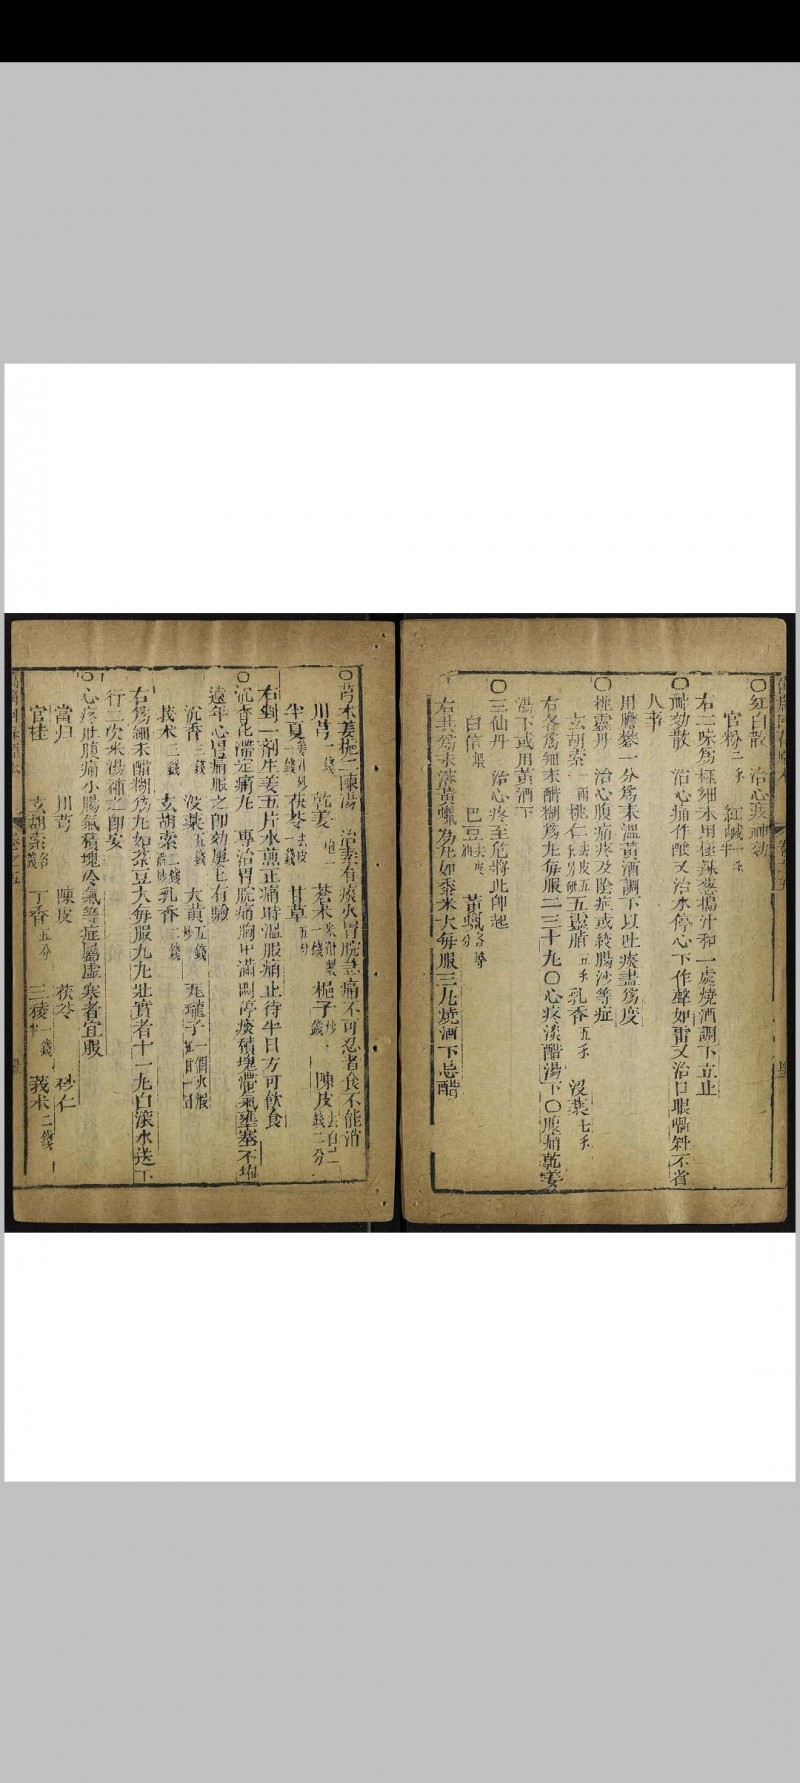 ○紅白散　治心疼神効
官粉二錢　紅鹹一錢半
右二味為極細末用極辣葱搗汁和一處燒酒調下立止
○神効散　治心痛作酸又治水停心下作聲如雷又治口眼喎斜不省
人事
用膽礬一分為末溫黃酒調下以吐痰盡為度
○桃靈丹　治心腹痛疼及陰症或絞腸沙等症
玄胡索一兩　桃仁去皮五錢　五靈脂五錢　乳香五錢　沒藥七錢
右各為細末醋糊為丸每服二三十丸○心疼淡醋湯下○腹痛乾姜
湯下或用黃酒下
○三仙丹　治心疼至危將此即起
白信煨　巴豆去皮油　黃蠟各等分
右共為末溶黃蠟為丸如黍米大每服三丸燒酒下忌醋
○芎朮姜梔二陳湯　治素有痰火胃脘急痛不可忍者食不能消
川芎一錢　乾姜　蒼朮米泔製一錢　梔子炒　陳皮去白一錢二分
半夏姜汁炒一錢　茯苓去皮一錢　甘草五分
右剉一劑生姜五片水煎正痛時溫服痛止待半日方可飲食
○沉香化滯定痛丸　專治胃脘痛胸中滿悶停痰積塊滯氣壅塞不拘
遠年心胃痛服之即効屢屢有驗
沉香三錢　沒藥五錢　大黃五錢炒　瓦壟子一個火煅
莪朮三錢　玄胡索三錢酒炒　乳香三錢
右為細末醋糊為丸如菉豆大每服九丸壯實者十一丸白滾水送下
行二次米湯補之即安
○心疼肚腹痛小腸氣積塊冷氣等症屬虛寒者宜服
當歸　川芎　陳皮　茯苓　砂仁
官桂　玄胡索各錢　丁香五分　三稜一錢　莪朮二錢